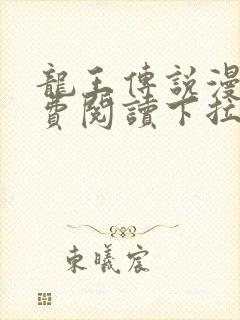 龍王傳說漫
費閱讀下拉
東曦宸